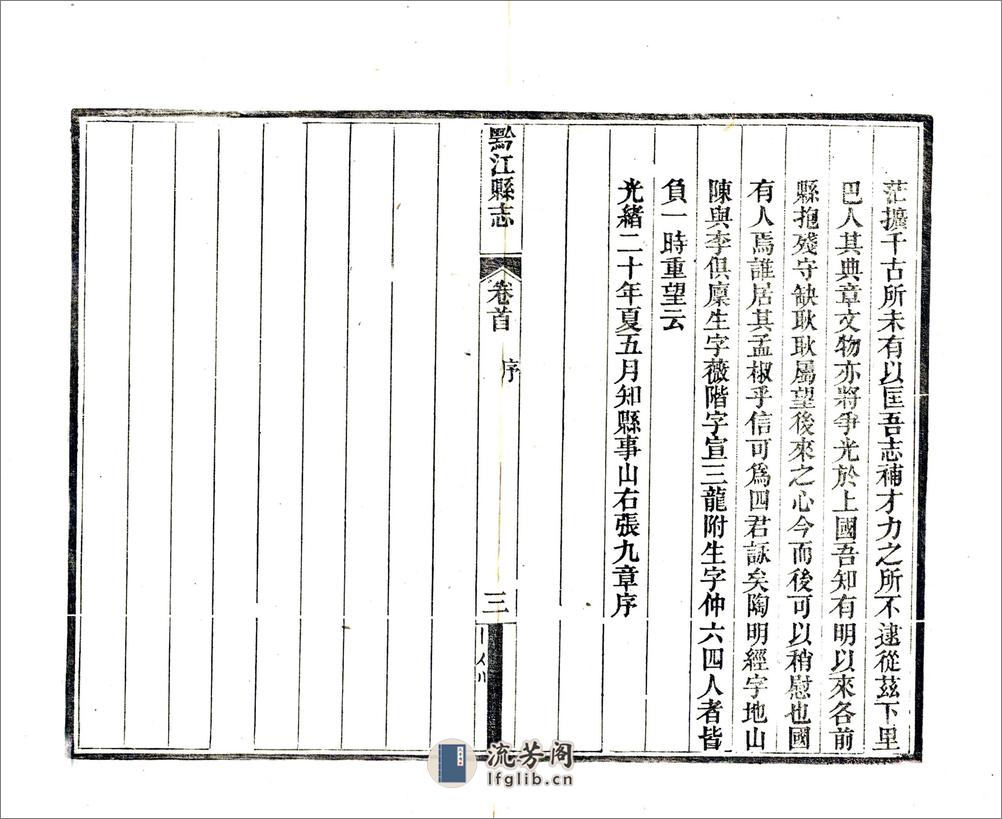 茫擴千古所未有以匡吾志補才力之所不逮從茲下里
巴人其典章文物亦將爭光於上國吾知有明以來各前
縣抱殘守缺耿耿屬望後來之心今而後可以稍慰也國
有人焉誰居其孟椒乎信可爲四君詠矣陶明經字地山
陳與李俱廩生字薇階字宣三龍附生字仲六四人者皆
負一時重望云
光緒二十年夏五月知縣事山右張九章序
黔江縣志
卷首
序
三
流芳阁
lfglib.cn